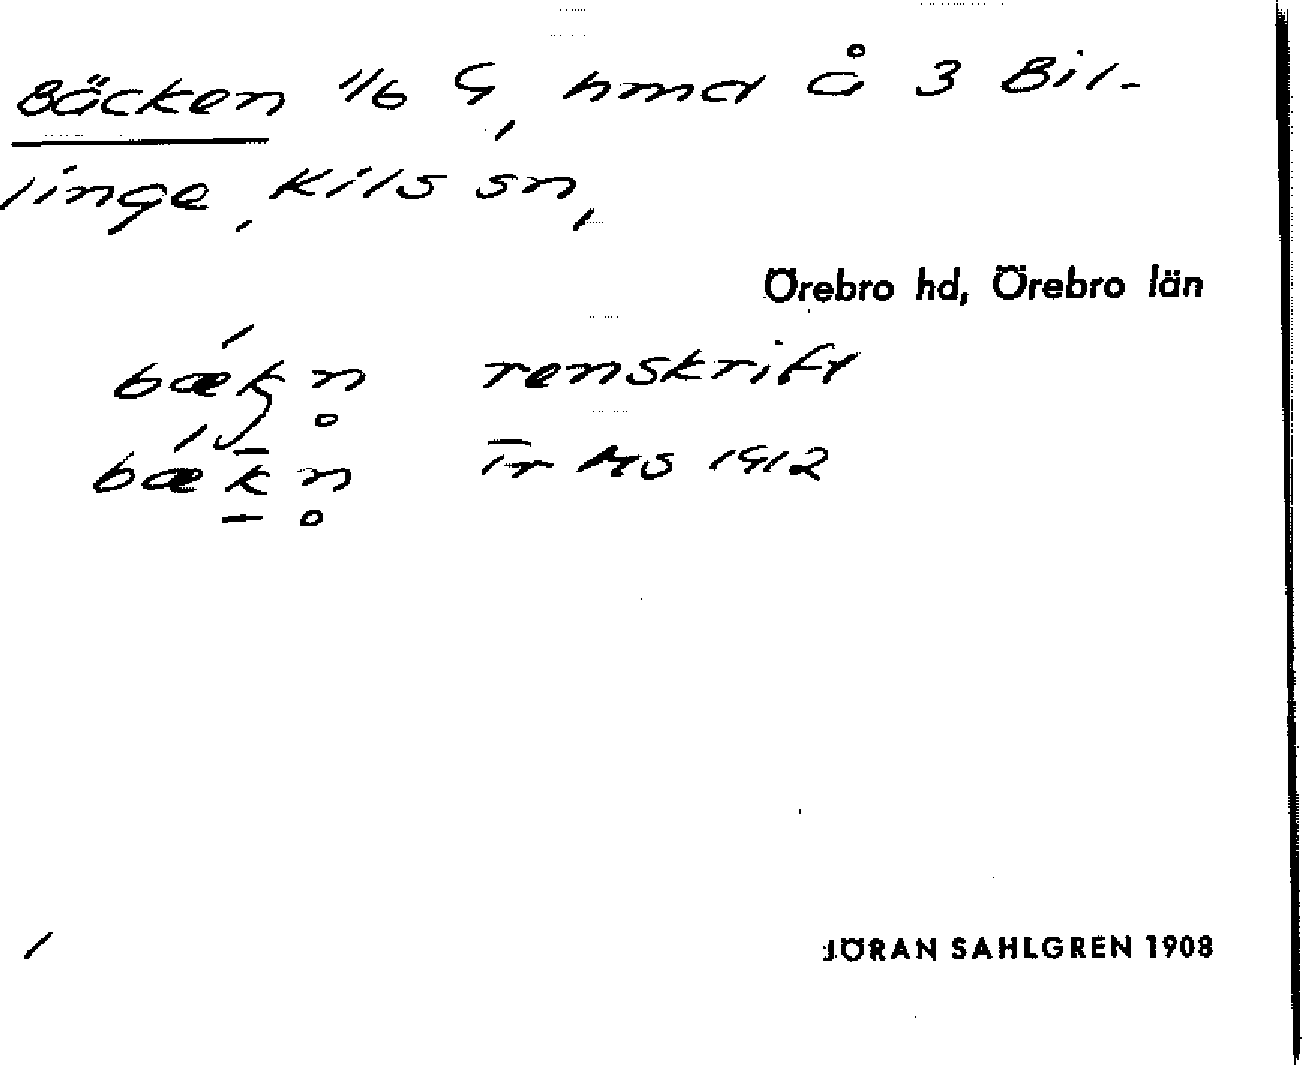 Bäcken 1/6 G, hmd å 3 Bil-
linge, Kils sn,
Örebro hd, Örebro län
bækn renskrift
bækn Tr MS 1912
JÖRAN SAHLGREN 1908